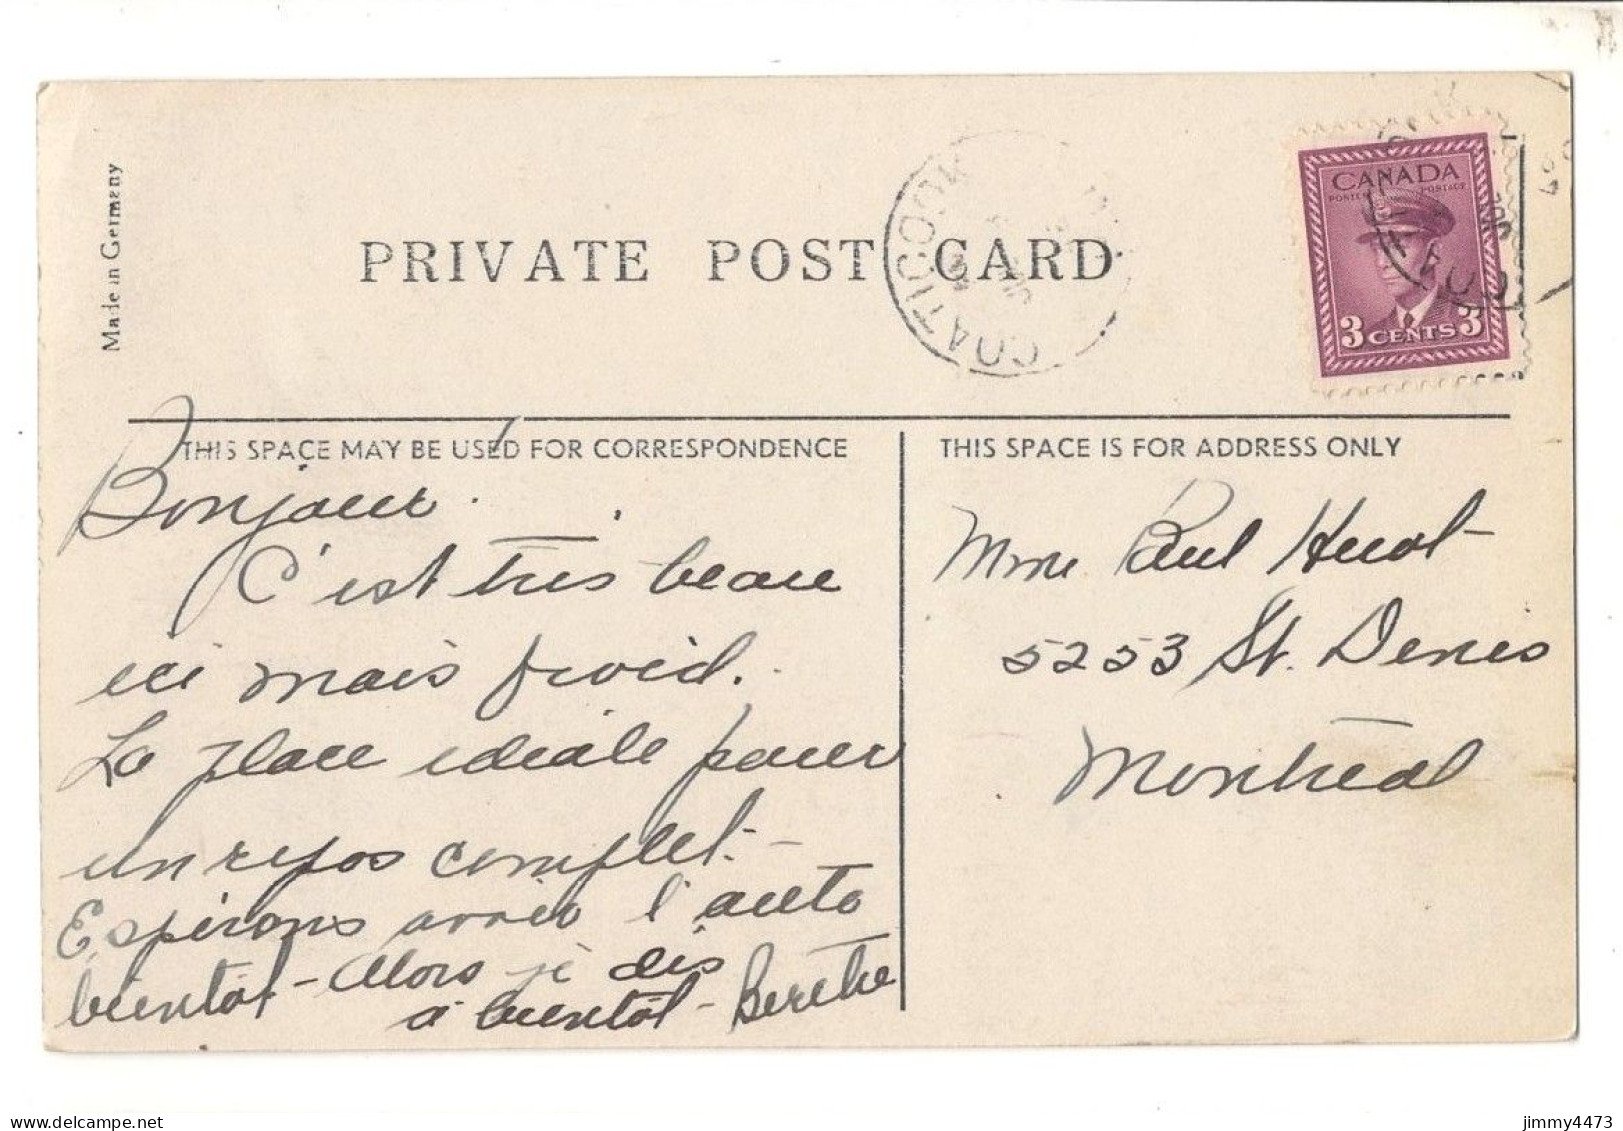 Made in Germany
PRIVATE POST CARD
COATICOOK
CANADA
POSTES POSTAGE
3 CENTS 3
THIS SPACE MAY BE USED FOR CORRESPONDENCE
Bonjour.
C'est très beau
ici mais froid.
La place idéale pour
un repos complet. -
Espérons avoir l'auto
bientôt - Alors je dis
à bientôt - Berthe
THIS SPACE IS FOR ADDRESS ONLY
Mme Paul Huot
5253 St. Denis
Montréal
jimmy4473